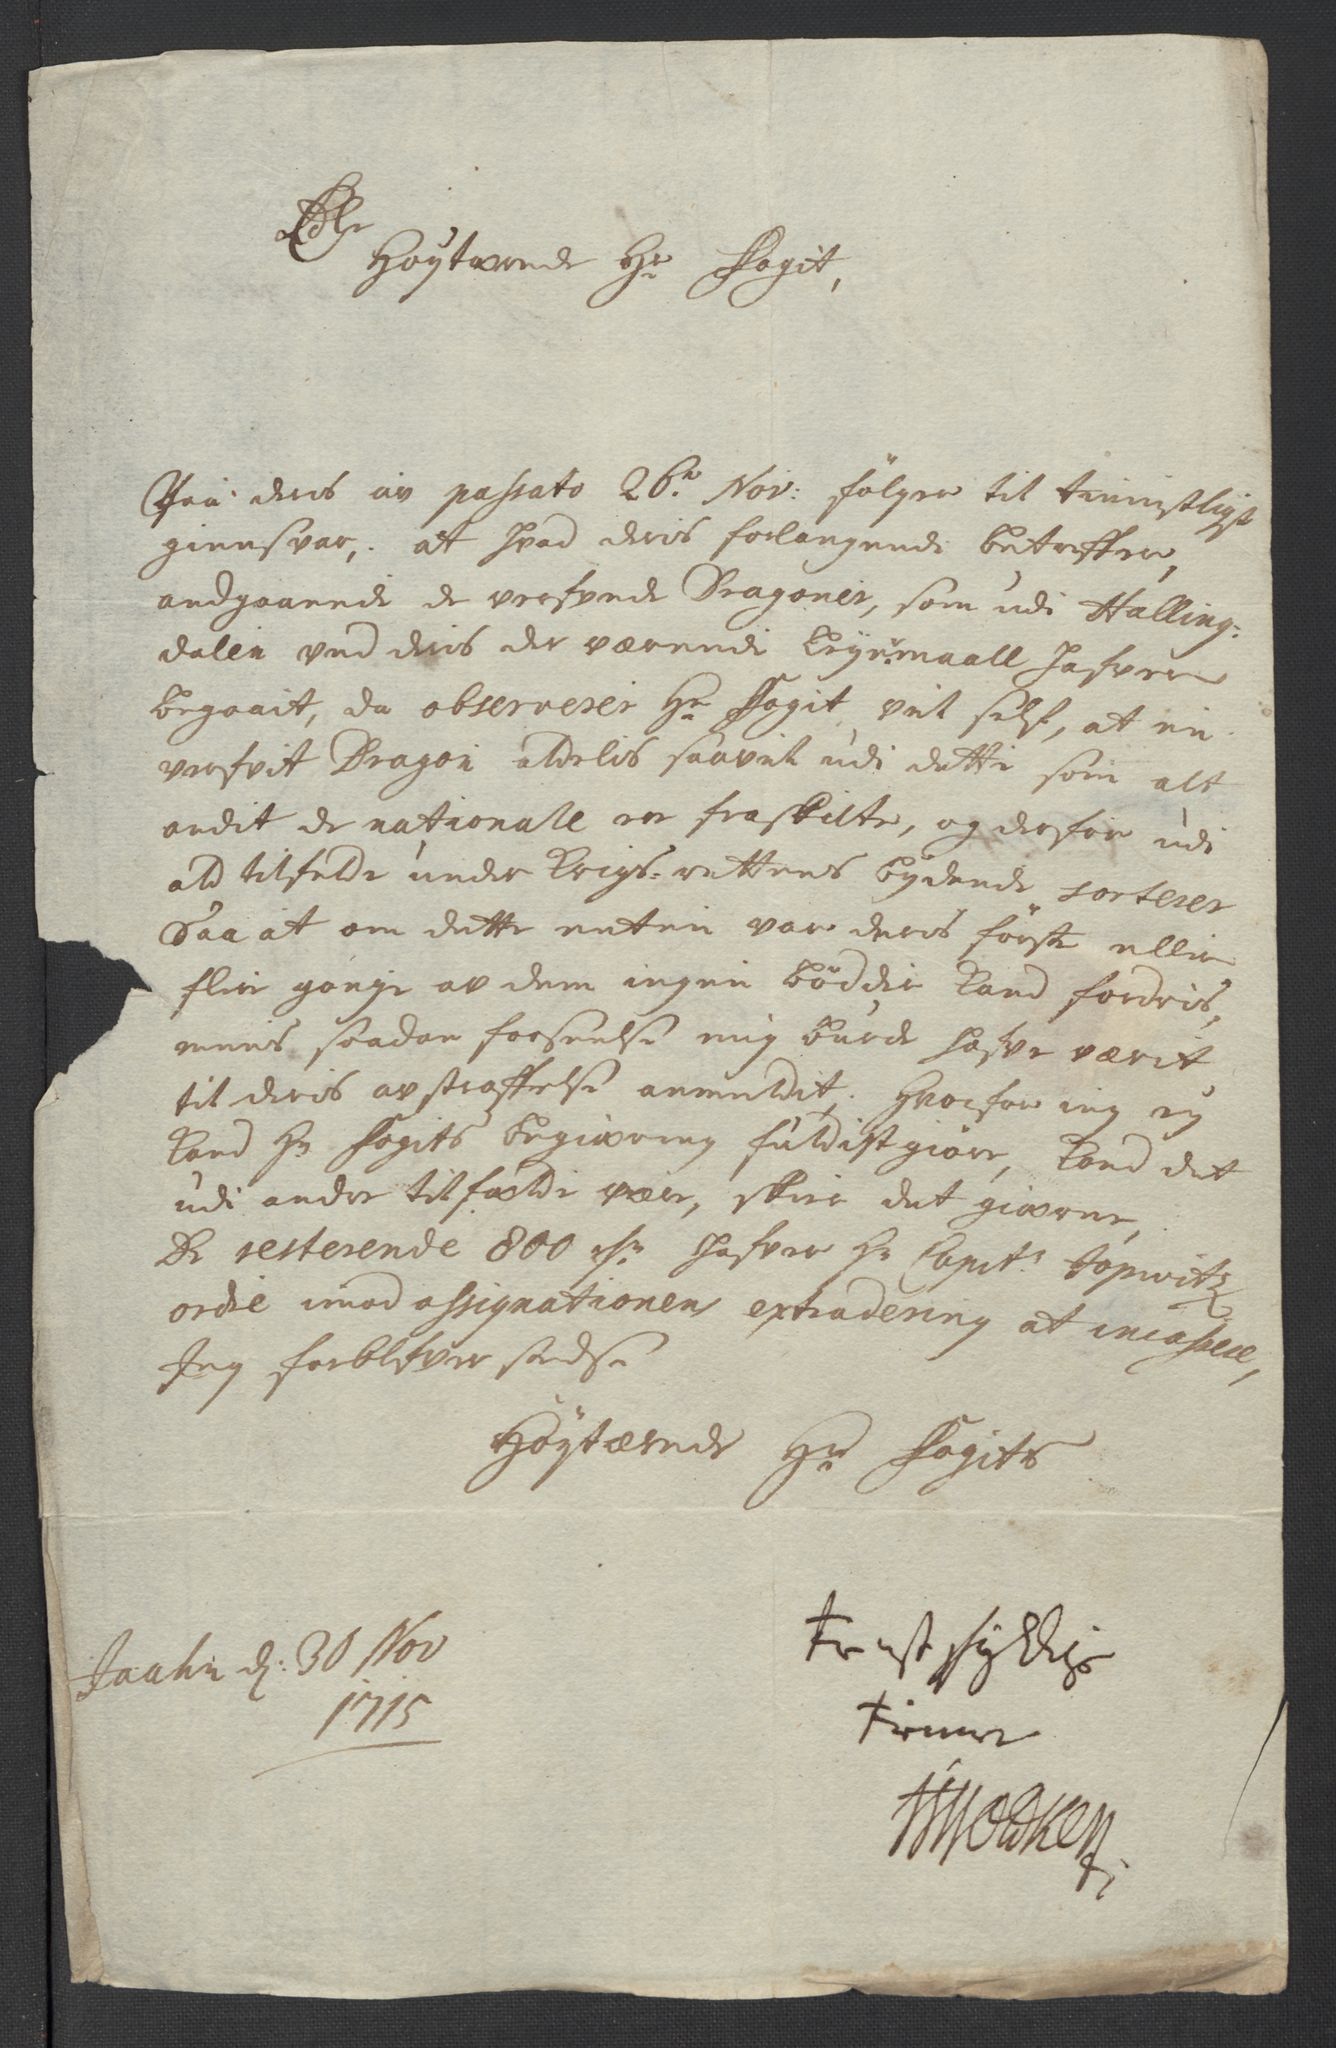 Edle
Høytærede Hr Fogit,
Paa deris av passato 26.e Nov: fölger til tienistligst
giensvar, at hvad deris forlangende betreffer,
andgaaende de verfvede Dragoner, som udi Halling-
dalen ved deris der værende leyermaall hafver
begaait, da observerer Hr Fogit vel self, at en
verfvit Dragon aldelis saavel udi dette som alt
andit de nationale er fraskilte, og derfor udi
ald tilfelde under Krigs-rettens bydende sorterer
Saa at om dette enten var deris förste eller
flere gange av dem ingen bödder kand fordris,
mens saadan forseelse mig burde hafve værit
til deris avstraffelse anmeldit, hvorfor ieg ey
kand Hr Fogits begiæring fuldistgiöre, kand det
udi andre tilfælde være, skeer det giærne,
De resterende 800 rdr hafver Hr Capit: Topwitz
ordre imod assignationens extradering at incassere,
Jeg forblifver stedse
Höytærede Hr Fogits
d: 30 Nov
1715
tienstskyldigste
tienere